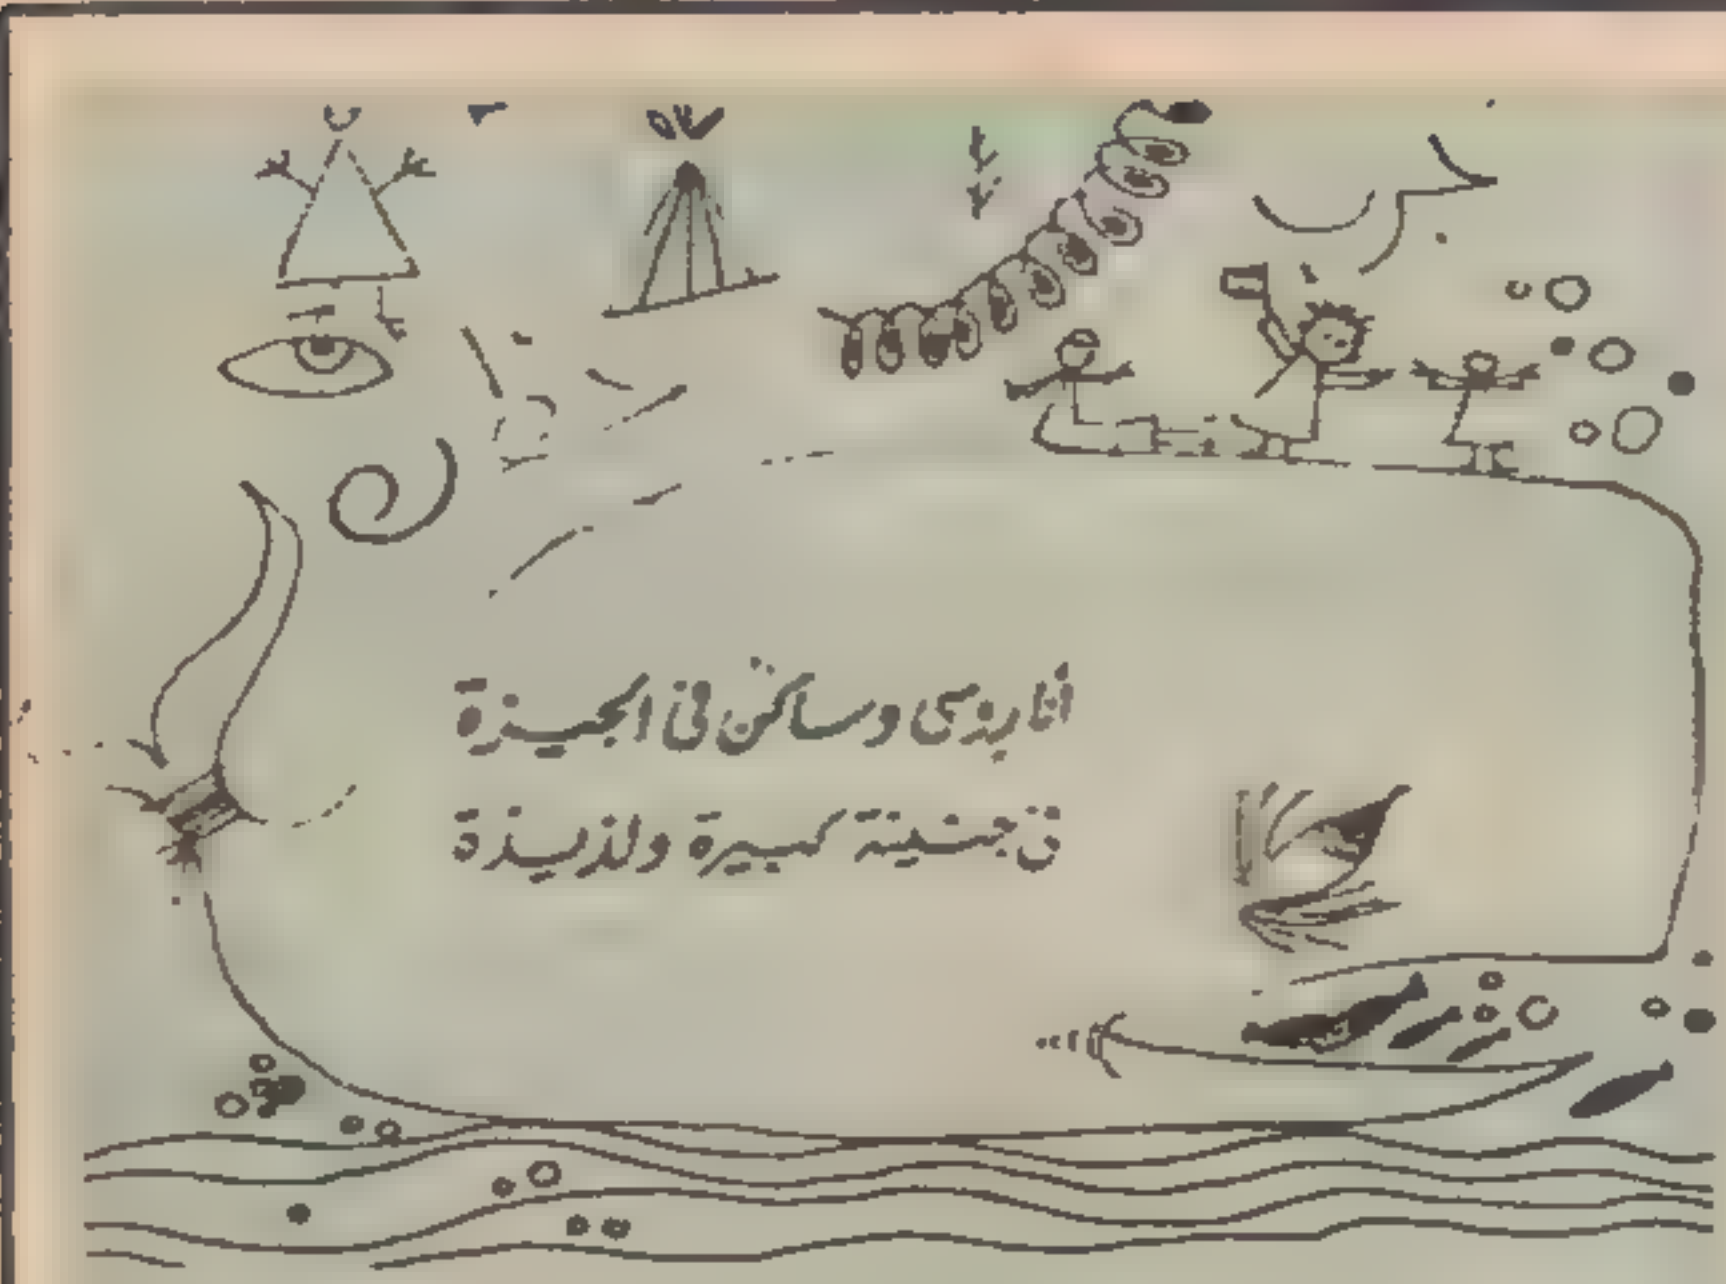 أنا برنسى وساكن فى الجيزة
فى جنينة كبيرة ولذيذة